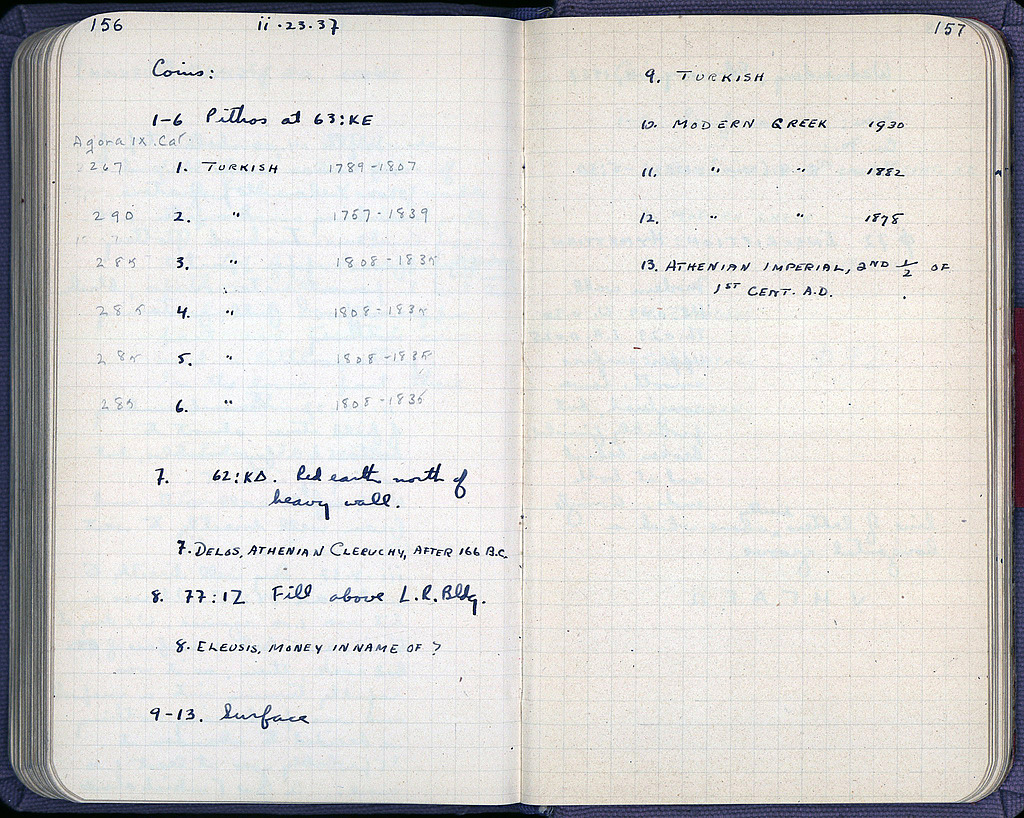 156 ii·23·37
Coins:
1-6 Pithos at 63:KE
Agora IX. Cat.
267 1. TURKISH 1789-1807
290 2. " 1757-1839
285 3. " 1808-1835
285 4. " 1808-1835
285 5. " 1808-1835
285 6. " 1808-1835
7. 62:KΔ. Red earth north of
heavy wall.
7. DELOS, ATHENIAN CLERUCHY, AFTER 166 B.C.
8. 77:IZ Fill above L.R. Bldg.
8. ELEUSIS, MONEY IN NAME OF ?
9-13. Surface
157
9. TURKISH
10. MODERN GREEK 1930
11. " " 1882
12. " " 1878
13. ATHENIAN IMPERIAL, 2ND 1/2 OF
1ST CENT. A.D.